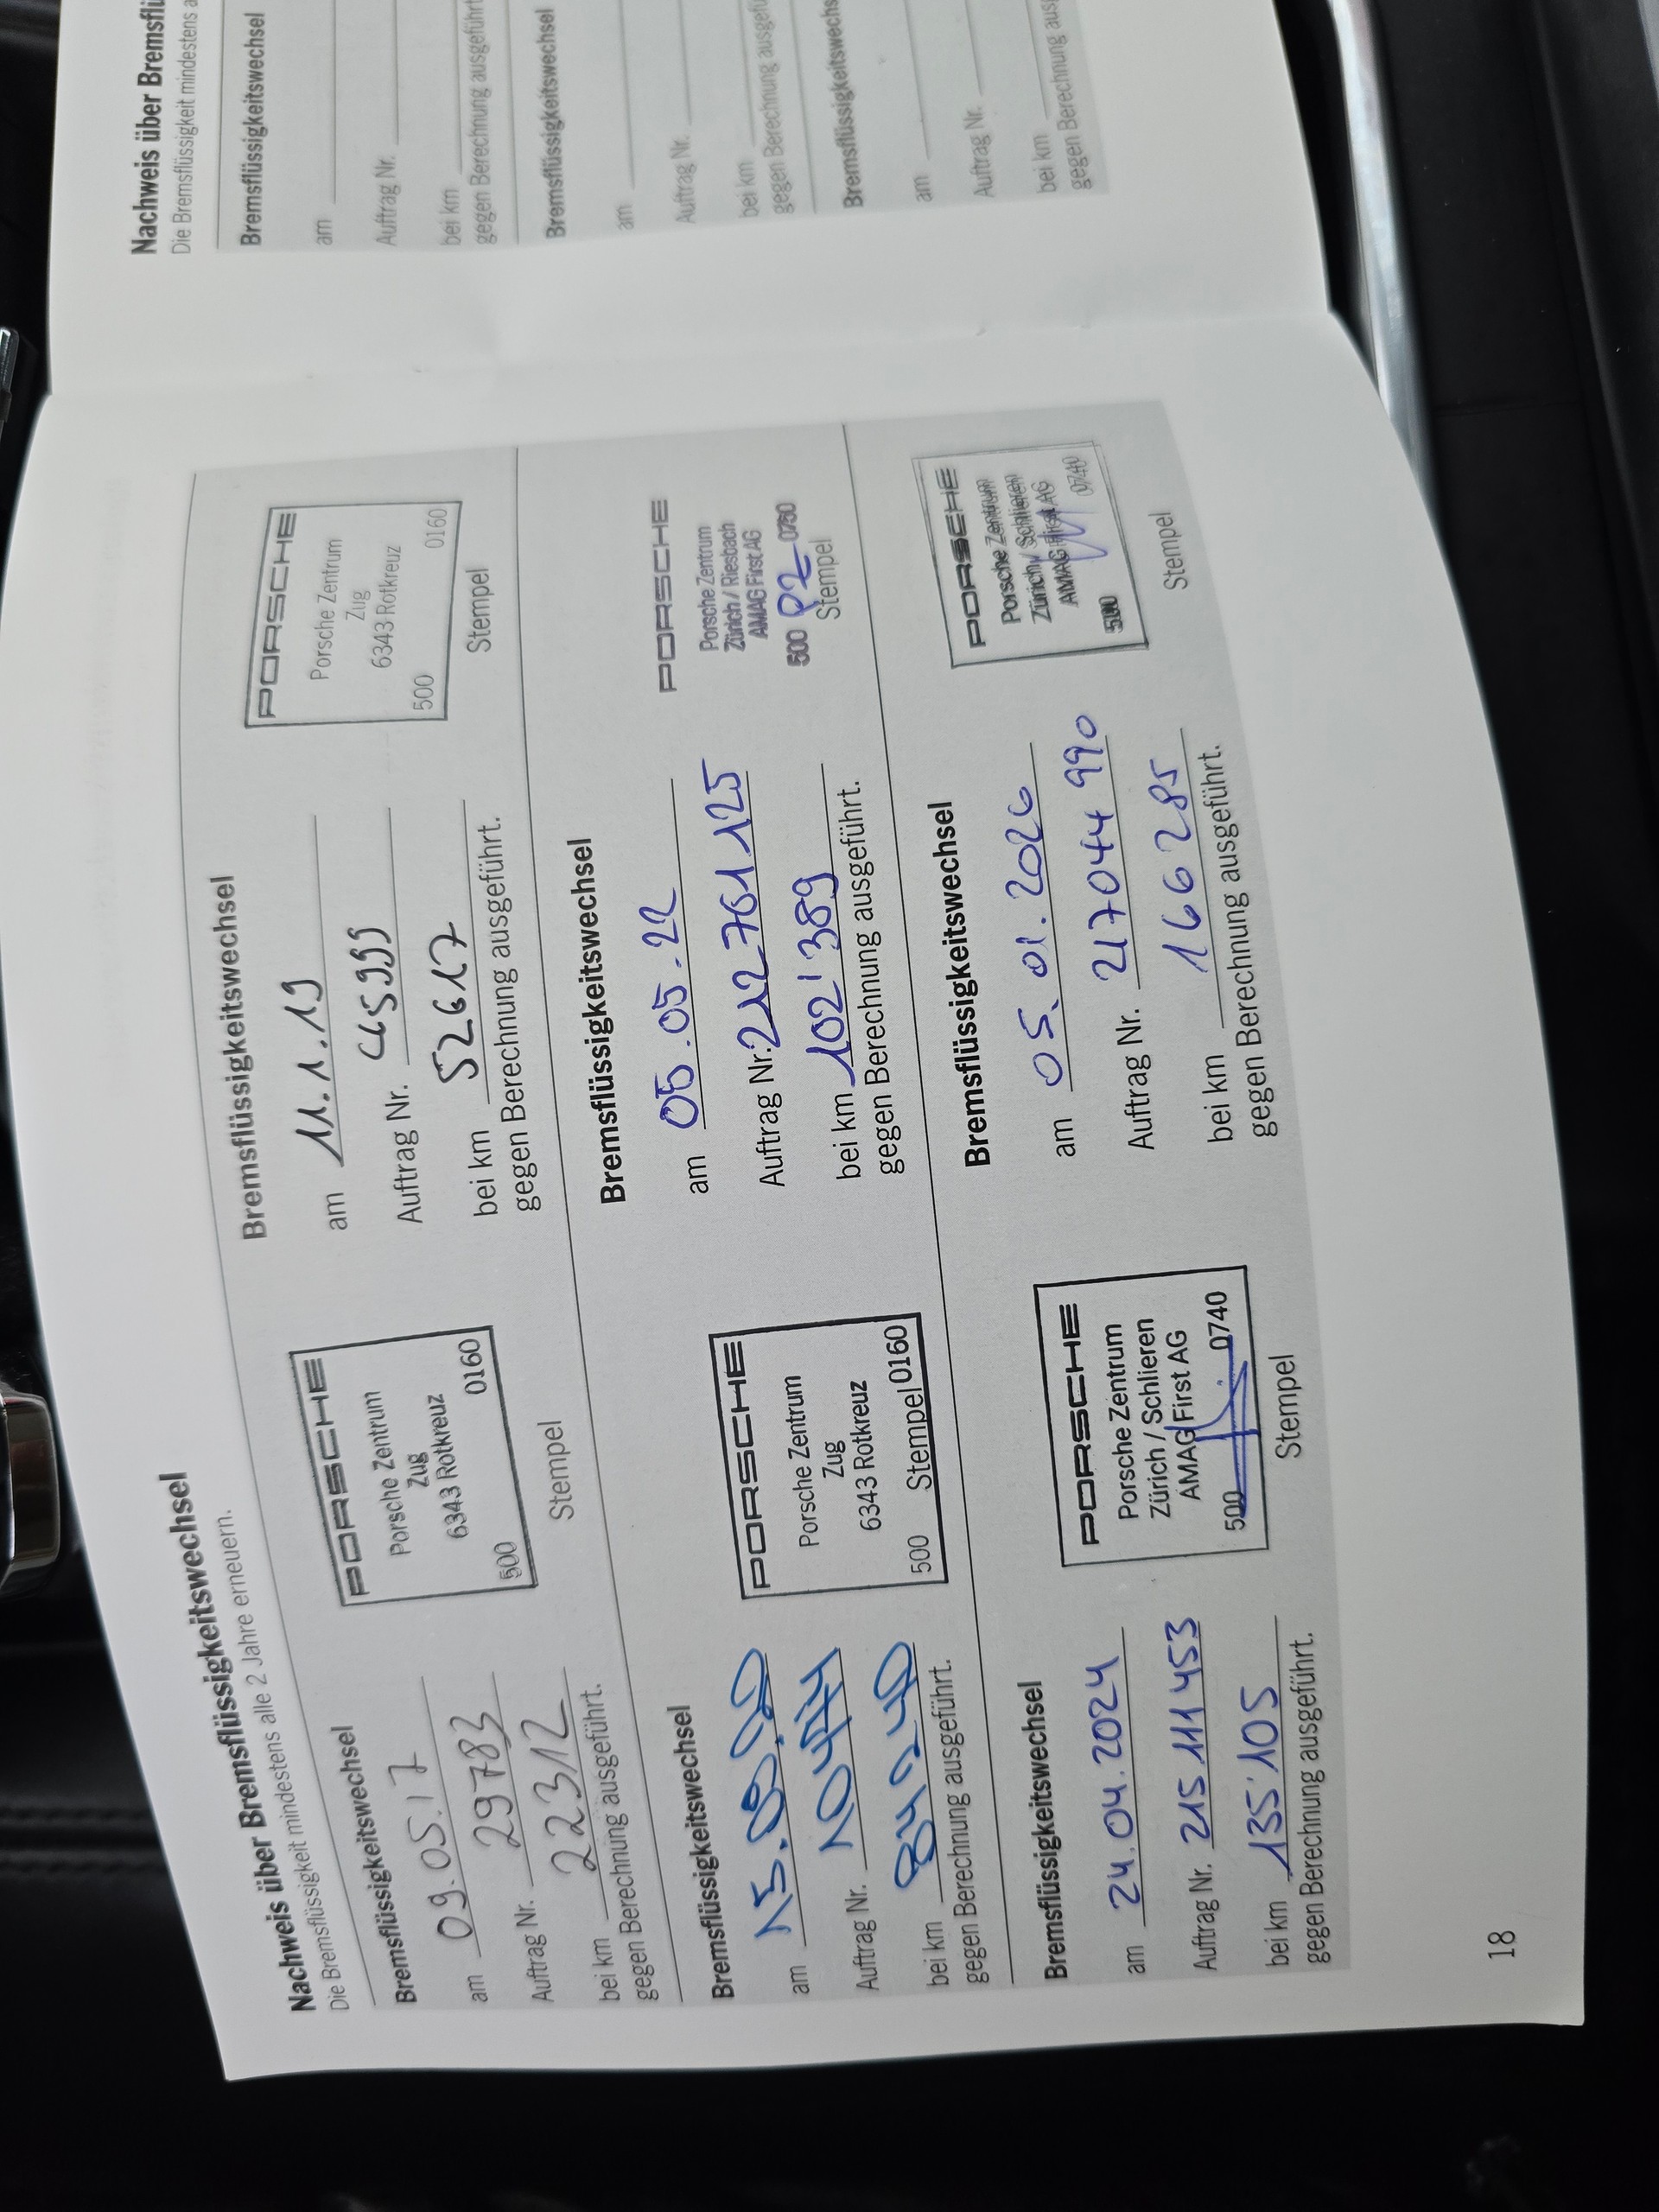 Nachweis über Bremsflüssigkeitswechsel
Die Bremsflüssigkeit mindestens alle 2 Jahre erneuern.
Bremsflüssigkeitswechsel
am 09.05.17
Auftrag Nr. 29783
bei km 22312
gegen Berechnung ausgeführt.
PORSCHE
Porsche Zentrum
Zug
6343 Rotkreuz
500 0160
Stempel
Bremsflüssigkeitswechsel
am 11.1.19
Auftrag Nr. 45999
bei km 52617
gegen Berechnung ausgeführt.
PORSCHE
Porsche Zentrum
Zug
6343 Rotkreuz
500 0160
Stempel
Bremsflüssigkeitswechsel
am
Auftrag Nr.
bei km
gegen Berechnung ausgeführt.
PORSCHE
Porsche Zentrum
Zug
6343 Rotkreuz
500 Stempel 0160
Bremsflüssigkeitswechsel
am 05.05.22
Auftrag Nr. 212761125
bei km 102'389
gegen Berechnung ausgeführt.
PORSCHE
Porsche Zentrum
Zürich / Riesbach
AMAG First AG
500 PZ 0760
Stempel
Bremsflüssigkeitswechsel
am 24.04.2024
Auftrag Nr. 215111453
bei km 135'105
gegen Berechnung ausgeführt.
PORSCHE
Porsche Zentrum
Zürich / Schlieren
AMAG First AG
500 0740
Stempel
Bremsflüssigkeitswechsel
am 05.01.2026
Auftrag Nr. 217044990
bei km 166285
gegen Berechnung ausgeführt.
PORSCHE
Porsche Zentrum
Zürich / Schlieren
AMAG First AG
500 0740
Stempel
18
Nachweis über
Die Bremsflüssigkeit mindestens
Bremsflüssigkeitswechsel
am
Auftrag Nr.
bei km
gegen Berechnung ausgeführt
Bremsflüssigkeitswechsel
am
Auftrag Nr.
bei km
gegen Berechnung
am
Auftrag Nr.
bei km
gegen Berechnung